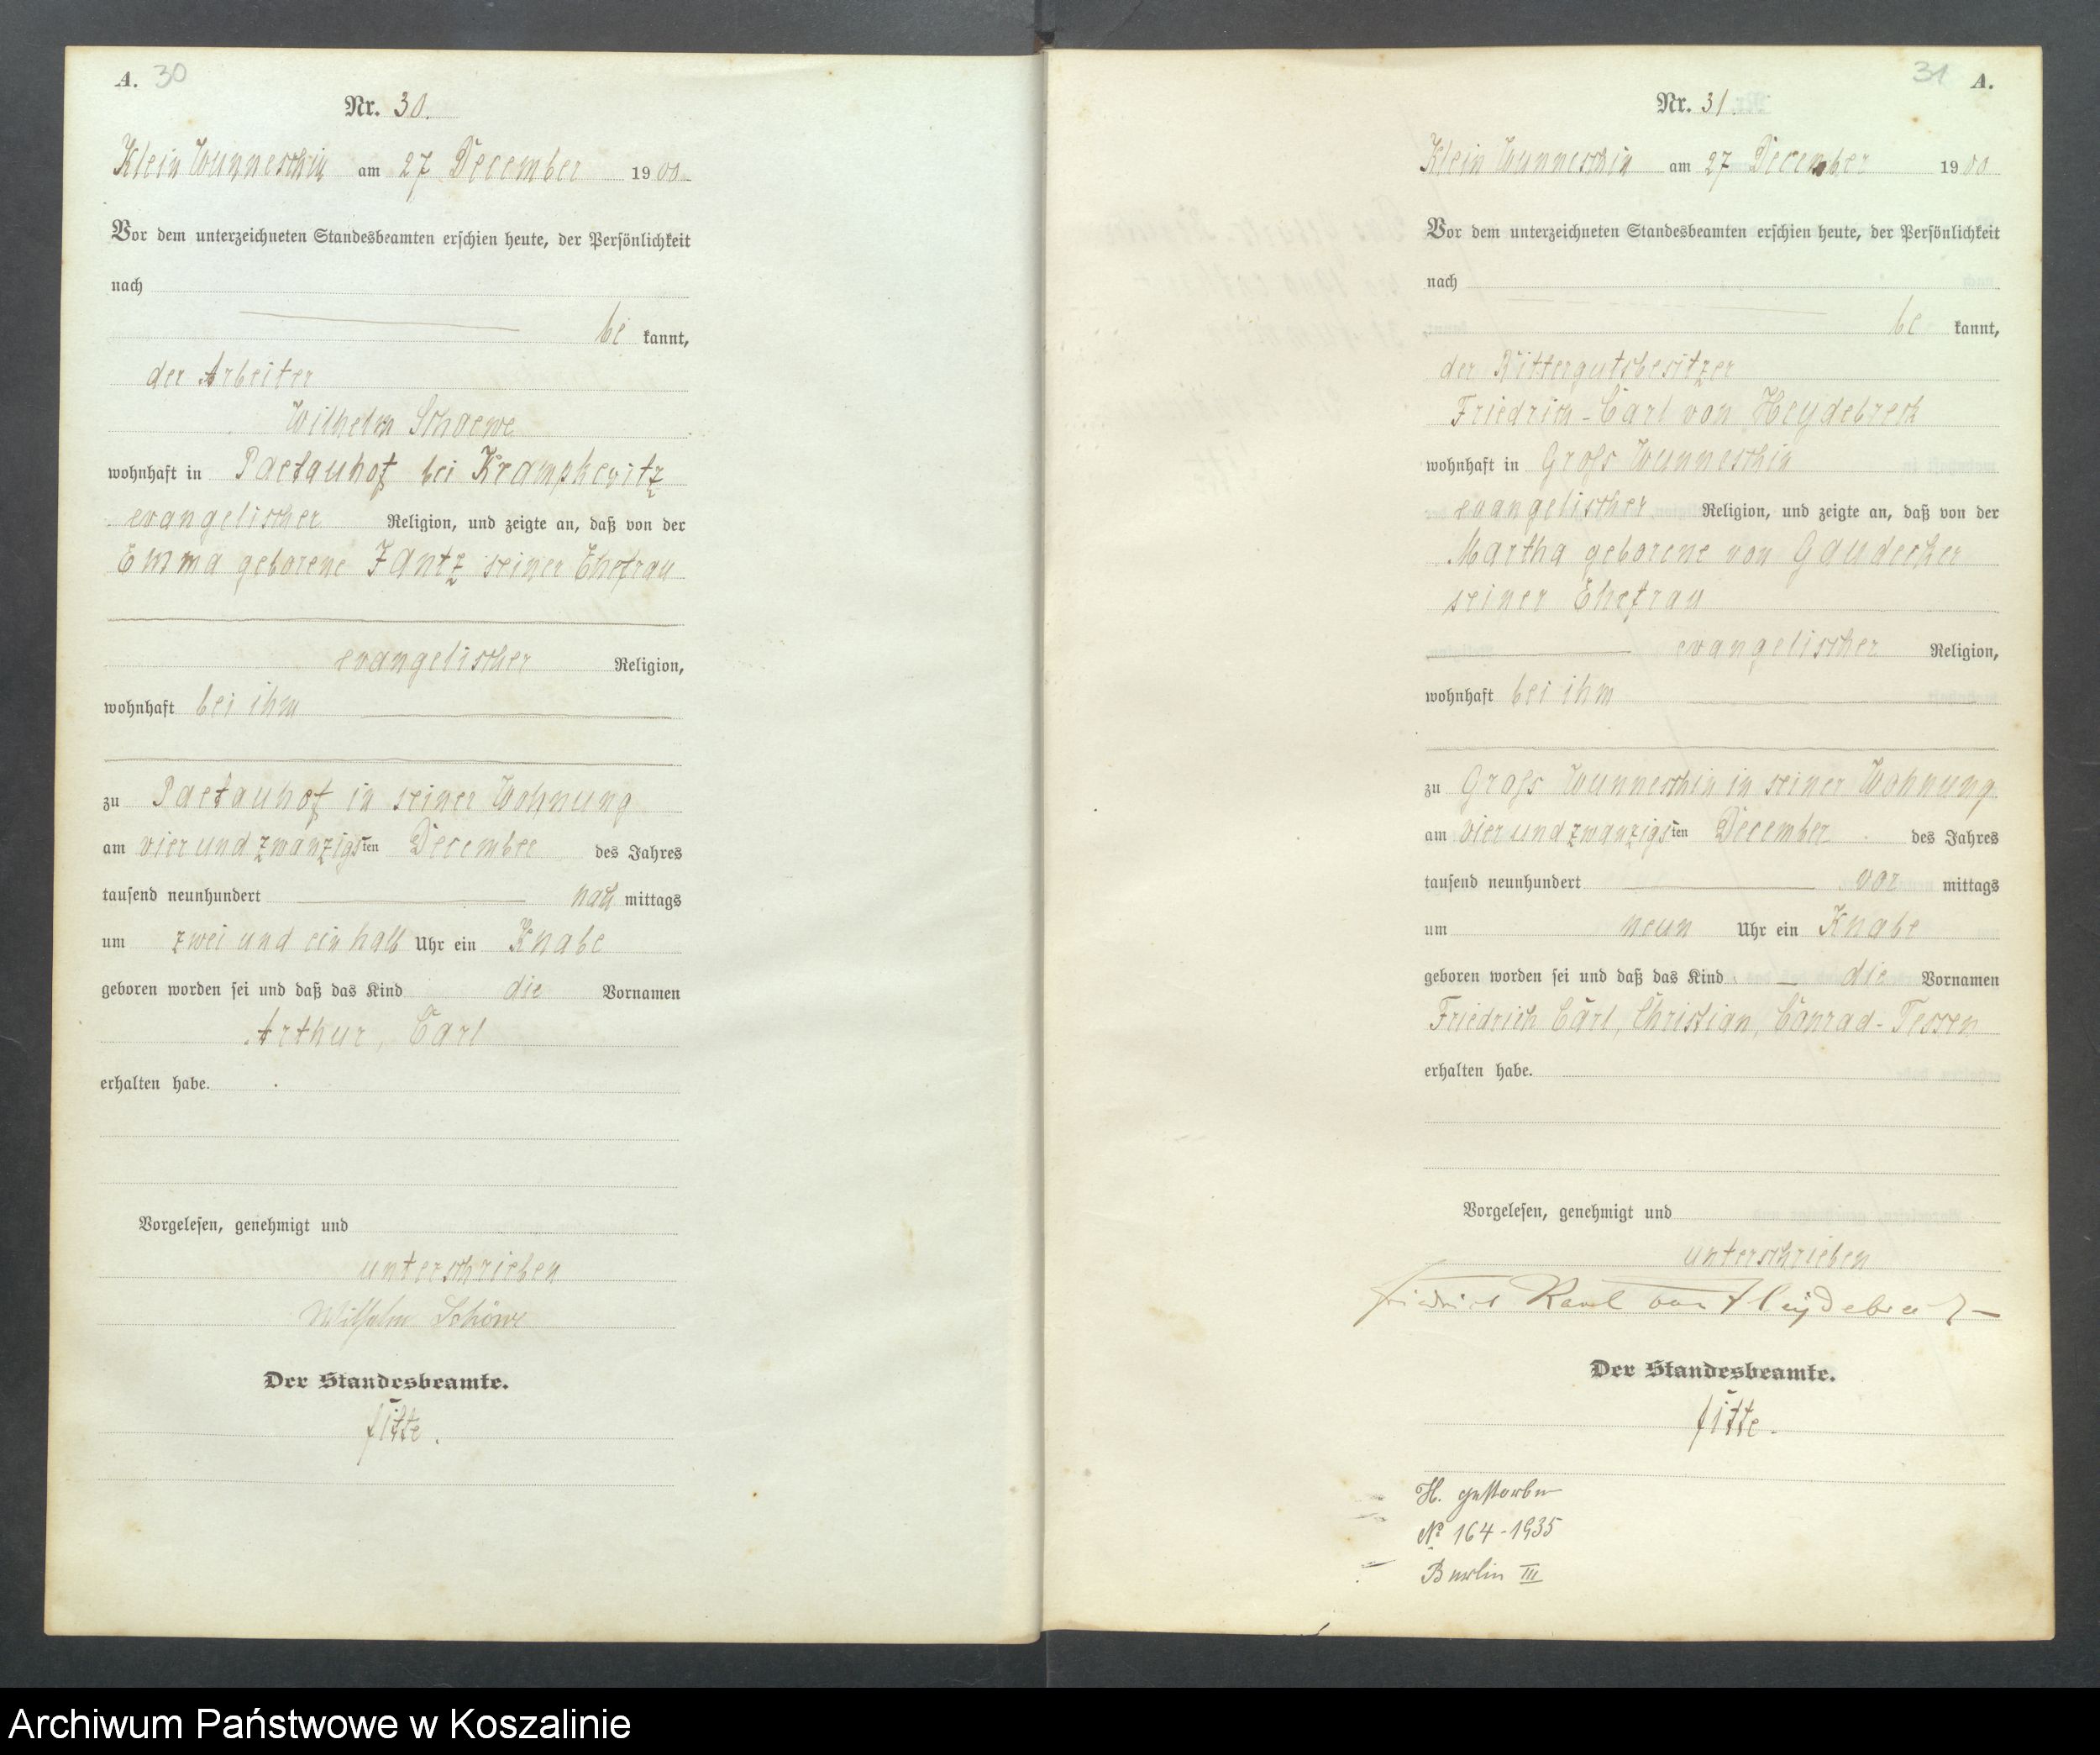 A. 30
Nr. 30.
Klein Wunneschin am 27 December 1900
Vor dem unterzeichneten Standesbeamten erschien heute, der Persönlichkeit
nach
be kannt,
der Arbeiter
Wilhelm Schoewe
wohnhaft in Paetauhof bei Krampkevitz
evangelischer Religion, und zeigte an, daß von der
Emma geborene Zantz seiner Ehefrau
evangelischer Religion,
wohnhaft bei ihm
zu Paetauhof in seiner Wohnung
am vier und zwanzigsten December des Jahres
tausend neunhundert nach mittags
um zwei und ein halb Uhr ein Knabe
geboren worden sei und daß das Kind die Vornamen
Arthur, Carl
erhalten habe.
Vorgelesen, genehmigt und
unterschrieben
Wilhelm Schöwe
Der Standesbeamte.
Fitte.
31 A.
Nr. 31.
Klein Wunneschin am 27 December 1900
Vor dem unterzeichneten Standesbeamten erschien heute, der Persönlichkeit
nach
be kannt,
der Rittergutsbesitzer
Friedrich-Carl von Heydebreck
wohnhaft in Groß Wunneschin
evangelischer Religion, und zeigte an, daß von der
Martha geborene von Gaudecker
seiner Ehefrau
evangelischer Religion,
wohnhaft bei ihm
zu Groß Wunneschin in seiner Wohnung
am vier und zwanzigsten December des Jahres
tausend neunhundert vor mittags
um neun Uhr ein Knabe
geboren worden sei und daß das Kind die Vornamen
Friedrich Carl, Christian, Conrad-Tessen
erhalten habe.
Vorgelesen, genehmigt und
unterschrieben
Friedrich Karl von Heydebreck
Der Standesbeamte.
Fitte.
H. gestorben
No 164-1935
Berlin III
Archiwum Państwowe w Koszalinie